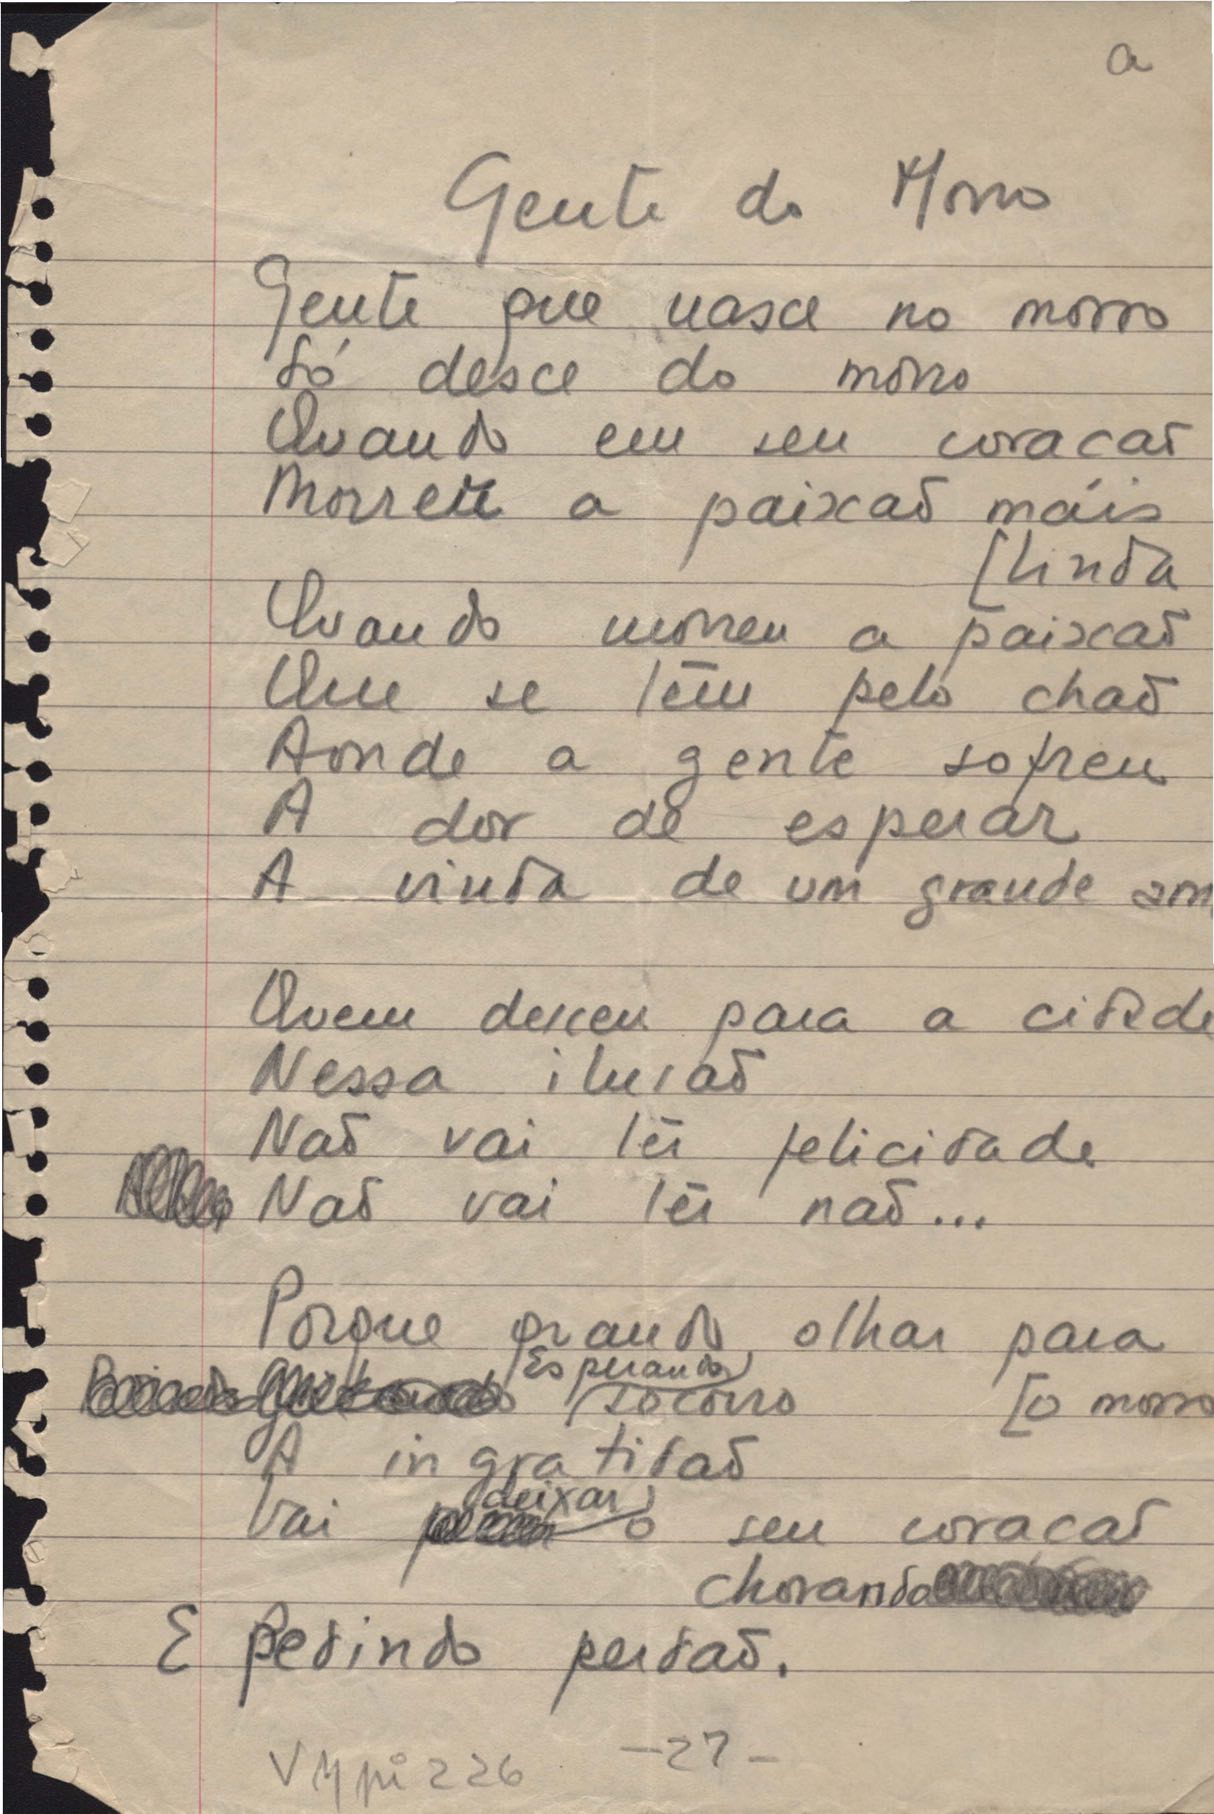 a
Gente do Morro
Gente que nasce no morro
Só desce do morro
Quando em seu coracaõ
Morreu a paixaõ máis
[linda
Quando morreu a paixaõ
Que se tēm pelo chaõ
Aonde a gente sofreu
A dor de esperar
A vinda de um grande am
Quem desceu para a cidade
Nessa ilusaõ
Naõ vai ter felicidade
Naõ vai ter naõ...
Porque quando olhar para
[o morro
Esperando
socorro
A ingratidaõ
Vai deixar o seu coracaõ
chorando
E Pedindo perdaõ.
VMpi 226 -27-